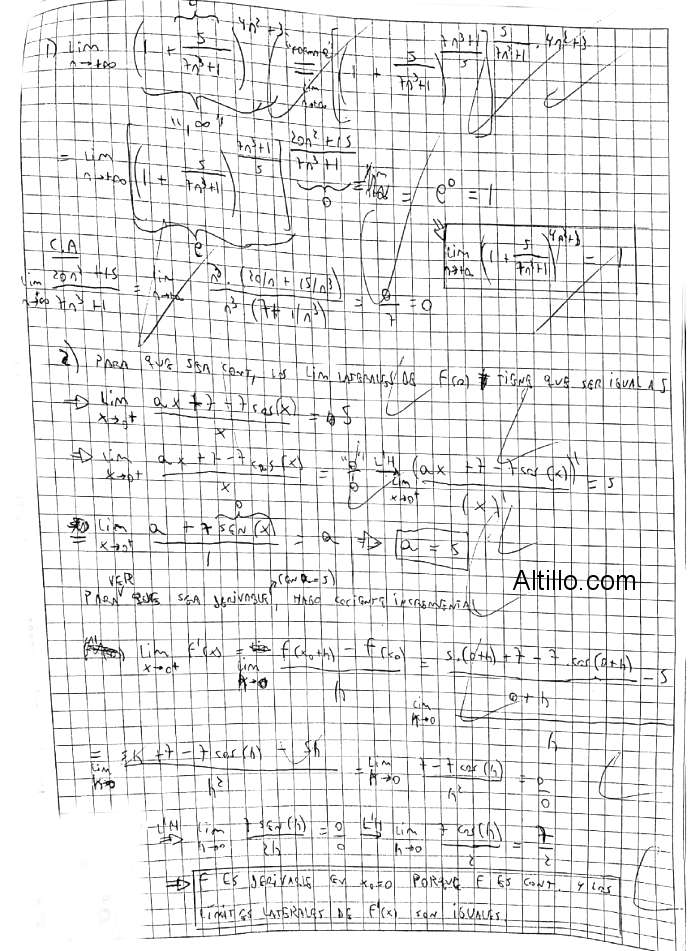 1) lim n→+∞ (1 + 5/(7n³+1))^(4n²+3) = lim n→+∞ [(1 + 5/(7n³+1))^((7n³+1)/5)]^(5/(7n³+1) · 4n²+3)
"1^∞"
= lim n→+∞ [(1 + 5/(7n³+1))^((7n³+1)/5)]^((20n²+15)/(7n³+1)) = e⁰ = 1
e
0
C.A
lim n→+∞ (1 + 5/(7n³+1))^(4n²+3) = 1
lim n→+∞ (20n²+15)/(7n³+1) = lim n→+∞ n³·(20/n + 15/n³)/n³·(7+1/n³) = 0/7 = 0
2) PARA QUE SEA CONT, LOS LIM LATERALES DE F(0) TIENE QUE SER IGUAL A 5
⇒ lim x→0⁺ (ax+7-7cos(x))/x = 5
⇒ lim x→0⁺ (ax+7-7cos(x))/x = "0/0" L'H → lim x→0⁺ (ax+7-7cos(x))'/(x)' = 5
= lim x→0⁺ (a + 7 SEN(x))/1 = a ⇒ a = 5
0
Altillo.com
PARA VER QUE SEA DERIVABLE, (CON a=5) HAGO COCIENTE INCREMENTAL
lim x→0⁺ f'(x) = lim h→0 (f(x₀+h) - f(x₀))/h = lim h→0 ((5·(0+h)+7-7·cos(0+h))/(0+h) - 5)/h
= lim h→0 (5h+7-7cos(h) - 5h)/h² = lim h→0 (7-7cos(h))/h² = 0/0
L'H ⇒ lim h→0 7 SEN(h)/2h = 0/0 L'H → lim h→0 7cos(h)/2 = 7/2
⇒ F ES DERIVABLE EN x₀=0 PORQUE F ES CONT. Y LOS
LÍMITES LATERALES DE F'(x) SON IGUALES.